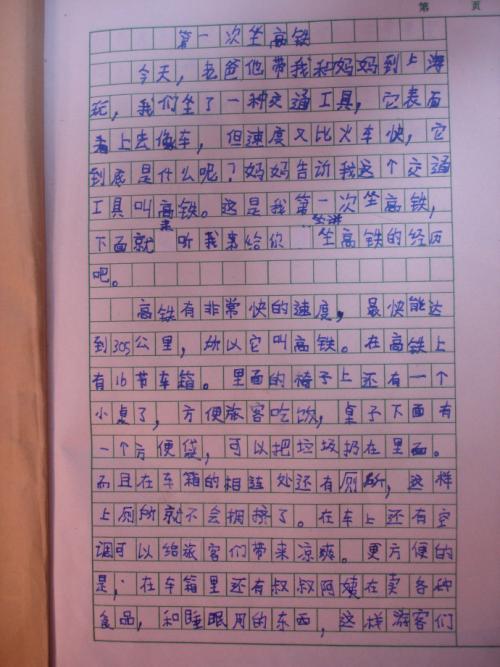 第 页
第一次坐高铁
今天，老爸他带我和妈妈到上海
玩，我们坐了一种交通工具，它表面
看上去像车，但速度又比火车快，它
到底是什么呢？妈妈告诉我这个交通
工具叫高铁。这是我第一次坐高铁，
来 坐讲
下面就 听我来给你 坐高铁的经历
吧。
高铁有非常快的速度，最快能达
到305公里，所以它叫高铁。在高铁上
有16节车箱。里面的椅子上还有一个
小桌了，方便旅客吃饮，桌子下面有
一个方便袋，可以把垃圾扔在里面。
而且在车箱的相连处还有厕所，这样
上厕所就不会拥挤了。在车上还有空
调可以给旅客们带来凉爽。更方便的
是，在车箱里还有叔叔阿姨在卖各种
食品，和睡眠用的东西，这样游客们